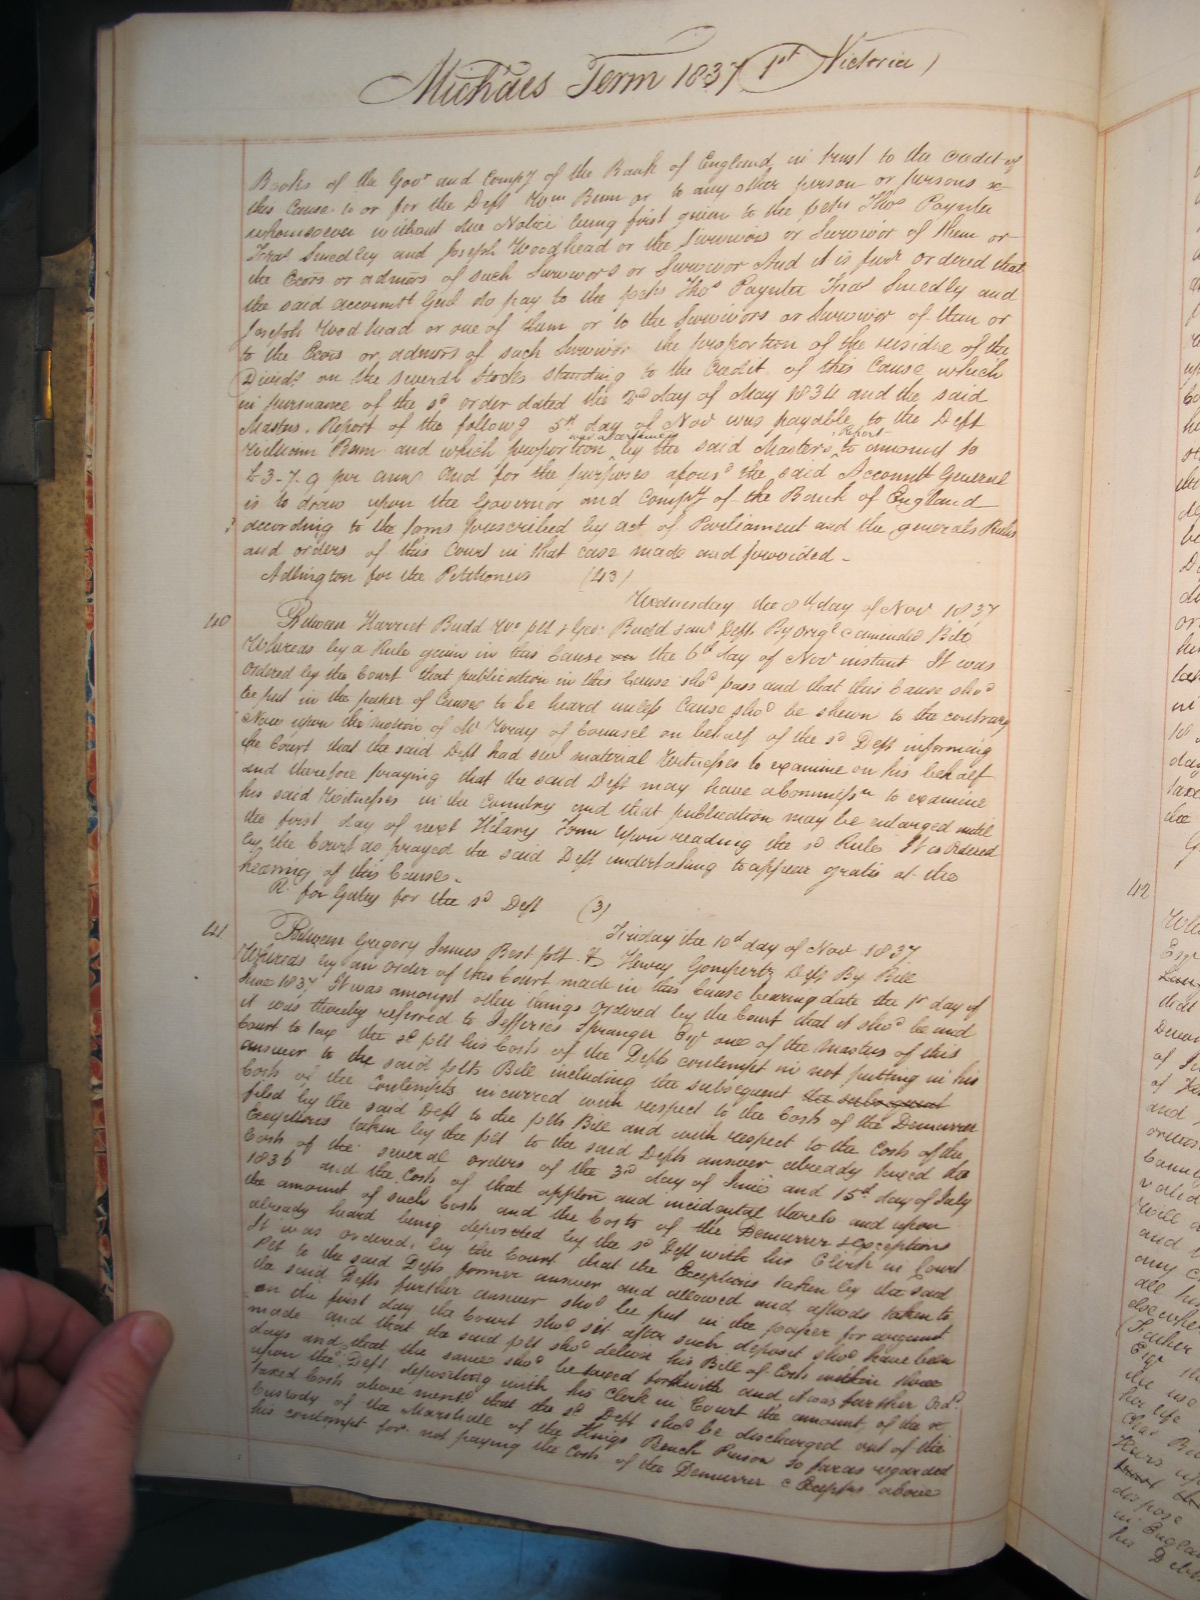 Michaes Term 1837 1st Victoria
Books of the Govr and Compy of the Bank of England in trust to the credit of
this Cause to or for the Deft Wm Bum or to any other person or persons
whomsoever without due Notice being first given to the petrs Thos Paynter
Smedley and Joseph Woodhead or the Survivors or Survivor of them or
the Exors or admors of such Survivors or Survivor And it is furr ordered that
the said accountt Genl do pay to the petrs Thos Paynter Smedly and
Joseph Woodhead or one of them or to the Survivors or Survivor of them or
to the Exors or admors of such Survivor the proportion of the residue of the
Dividds on the several Stocks standing to the Credit of this Cause which
in pursuance of the sd order dated the 2d day of May 1834 and the said
Masters Report of the followg 5th day of Nov was payable to the Deft
William Bum and which proportion was ascertained by the said Masters Report to amount to
£3-7-9 per ann And for the purposes afousd the said Accountt General
is to draw upon the Governor and Compy of the Bank of England
according to the form prescribed by act of Parliament and the generals Rules
and orders of this Court in that case made and provided -
Adlington for the Petitioners (43)
Wednesday the 8th day of Nov 1837
40 Between Harriet Budd Wo plt & Geo: Budd Defts By Origl & amended Bill
Whereas by a Rule given in this Cause on the 6th day of Nov instant It was
Ordered by the Court that publication in this Cause shod pass and that this Cause shod
be put in the paper of Causes to be heard unless Cause shod be shewn to the contrary
Now upon the motion of Mr Wray of Counsel on behalf of the sd Deft informing
the Court that the said Deft had sevl material Witnesses to examine on his behalf
and therefore praying that the said Deft may have a Commissn to examine
his said Witnesses in the Country and that publication may be enlarged until
the first day of next Hilary Term Upon reading the sd Rule It is Ordered
by the Court as prayed the said Deft undertaking to appear gratis at the
hearing of this Cause.
R. for Gatty for the sd Deft (3)
Friday the 10th day of Nov 1837
41 Between Gregory James Best plt & Henry Gompertz Deft By Bill
Whereas by an order of this Court made in this Cause bearing date the 1st day of
June 1837 It was amongst other things Ordered by the Court that it shod be and
it was thereby referred to Jefferies Spranger Esqr one of the Masters of this
Court to tax the sd plt his Costs of the Defts contempt in not putting in his
answer to the said plts Bill including the subsequent the subsequent
Costs of the Contempts incurred with respect to the Costs of the Demurrer
filed by the said Deft to the plts Bill and with respect to the Costs of the
Exceptions taken by the plt to the said Defts answer already taxed the
Costs of the several orders of the 3rd day of June and 15th day of July
1836 and the Costs of that appton and incidental thereto and upon
the amount of such Costs and the Costs of the Demurrer & Exceptions
already heard being deposited by the sd Deft with his Clerk in Court
It was ordered, by the Court that the Exceptions taken by the said
Plt to the said Defts former answer and allowed and afterwds taken to
the said Defts further answer shod be put in the paper for argumt
on the first day the Court shod sit after such deposit shod have been
made and that the said plt shod deliver his Bill of Costs within three
days and that the same shod be taxed forthwith and it was further Ordd
upon the Deft depositing with his Clerk in Court the amount of the
taxed Costs above mentd that the sd Deft shod be discharged out of the
Custody of the Marshall of the Kings Bench Prison so far as regarded
his contempt for not paying the Costs of the Demurrer & Exceptns above
42